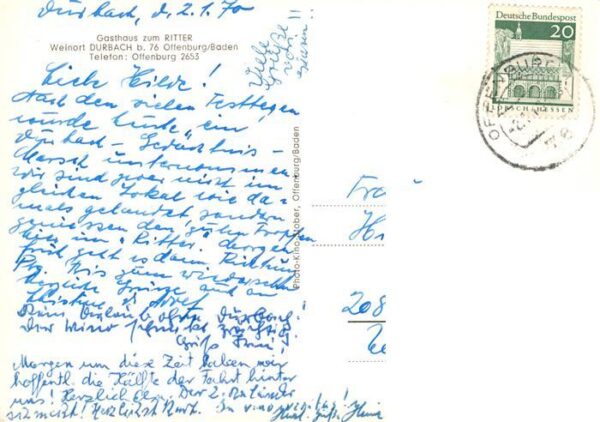 Durbach, d. 2.1.70
Gasthaus zum RITTER
Weinort DURBACH b. 76 Offenburg/Baden
Telefon: Offenburg 2653
Viele
Grüße
von
Liebe Hilde!
Nach den vielen Festtagen
wurde heute ein
Durbach - Gedächtnis -
Marsch unternommen.
Wir sind zwar nicht im
gleichen Lokal wie da-
mals gelandet, sondern
geniessen den guten Tropfen
hier im "Ritter". Morgen
früh geht es dann Richtung
Bis zum Wiedersehen
herzliche Grüsse auch an
Christine
Kein Urlaub ohne Durbach!
Der Wein schmeckt
Gruß
Morgen um diese Zeit haben wir
hoffentl. die Hälfte der Fahrt hinter
uns! Herzlich Der 2.
Herzlichst
Photo-King-Stober, Offenburg/Baden
Deutsche Bundespost
20
LORSCH/HESSEN
OFFENBURG
Fra
208